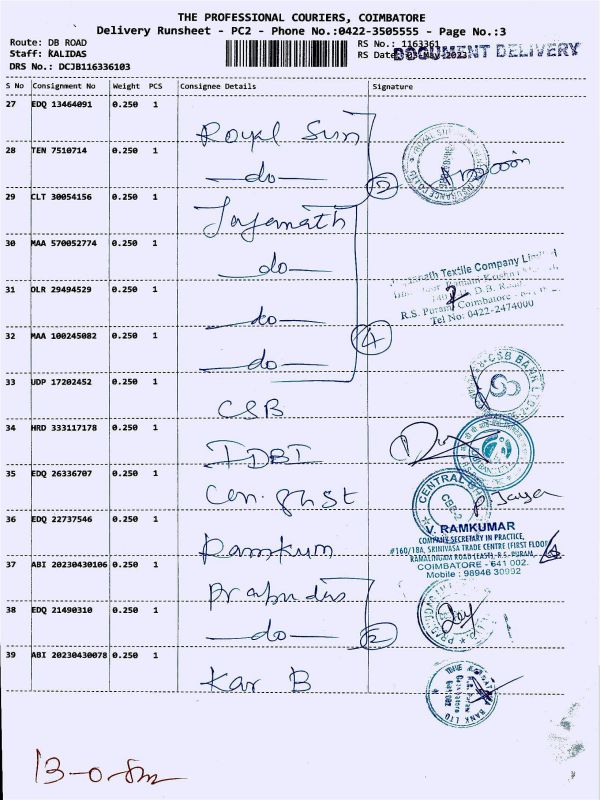 THE PROFESSIONAL COURIERS, COIMBATORE
Delivery Runsheet - PC2 - Phone No.:0422-3505555 - Page No.:3
Route: DB ROAD
RS No.: 1163361
Staff: KALIDAS
RS Date: 03-May-2023
DOCUMENT DELIVERY
DRS No.: DCJB116336103
S No Consignment No Weight PCS Consignee Details Signature
27 EDQ 13464091 0.250 1
Royal Sun
28 TEN 7510714 0.250 1
do
29 CLT 30054156 0.250 1
30 MAA 570052774 0.250 1
do
31 DLR 29494529 0.250 1
do
32 MAA 100245082 0.250 1
do
4
Textile Company
D.B. Road
R.S. Puram, Coimbatore
Tel No: 0422-2474000
33 UDP 17202452 0.250 1
CSB
CSB BANK LTD
34 HRD 333117178 0.250 1
IDBI
35 EDQ 26336707 0.250 1
Cen. Gh St
CENTRAL
36 EDQ 22737546 0.250 1
Ramkum
V. RAMKUMAR
COMPANY SECRETARY IN PRACTICE,
#160/18A, SRINIVASA TRADE CENTRE (FIRST FLOOR)
RAMALINGAM ROAD (EAST), R.S. PURAM,
COIMBATORE - 641 002.
Mobile : 98946 30992
37 ABI 20230430106 0.250 1
Prabudas
38 EDQ 21490310 0.250 1
do
2
39 ABI 20230430078 0.250 1
Kar B
BANK LTD